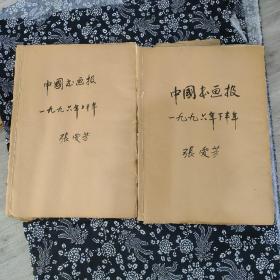 中國书画报
一九九六年上半年
張愛芳
中國书画报
一九九六年下半年
張愛芳